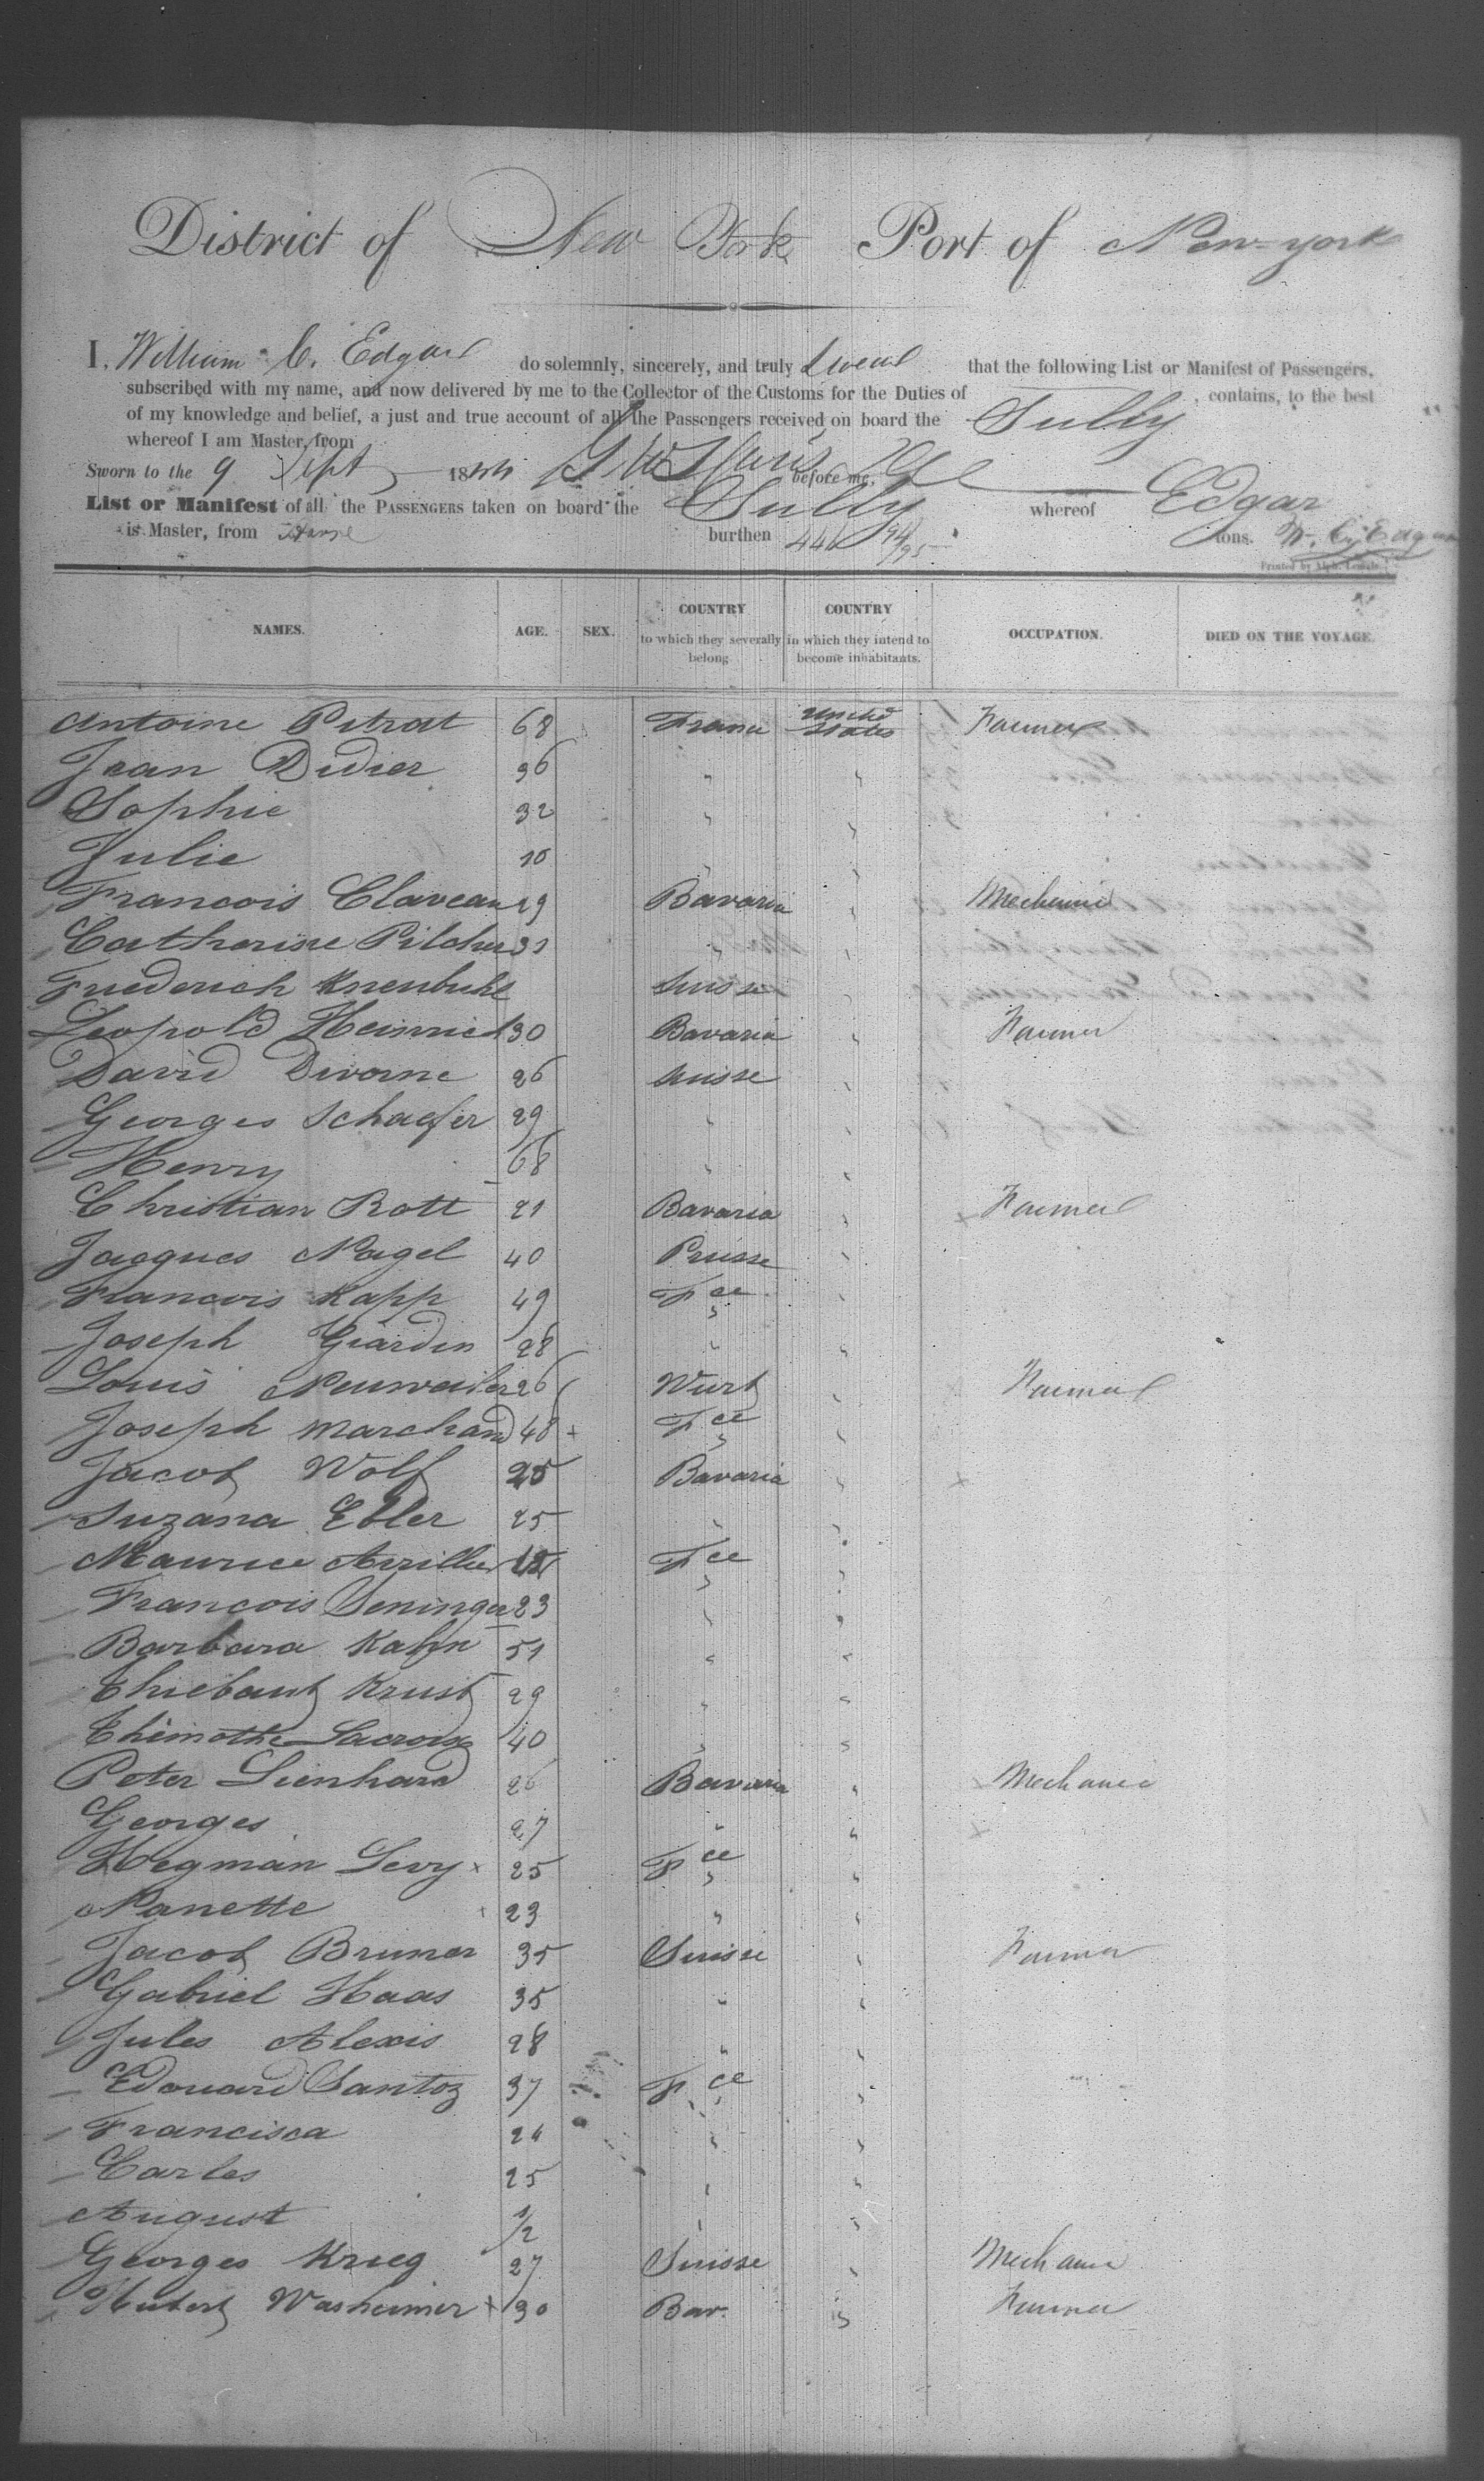 District of New York Port of New-york
I, William C. Edgar do solemnly, sincerely, and truly Swear that the following List or Manifest of Passengers,
subscribed with my name, and now delivered by me to the Collector of the Customs for the Duties of , contains, to the best
of my knowledge and belief, a just and true account of all the Passengers received on board the Sully
whereof I am Master, from
Sworn to the 9 Sept 1844 before me,
List or Manifest of all the PASSENGERS taken on board the Sully whereof Edgar
is Master, from Havre burthen 446 94/95 tons. W. C. Edgar
Printed by Alph. Lemale
NAMES. AGE. SEX. COUNTRY to which they severally belong COUNTRY in which they intend to become inhabitants. OCCUPATION. DIED ON THE VOYAGE.
Antoine Petrat 68 France United States Farmer
Jean Didier 36 " "
Sophie 32 " "
Julie 10 " "
Francois Claveau 29 Bavaria " Mechanic
Catharine Pilcher 31 " "
Friederich Knenbuhl Suisse "
Leopold Heinrich 30 Bavaria " Farmer
David Divorne 26 Suisse "
Georges Schaefer 29 " "
Henry 68 " "
Christian Rott 21 Bavaria " Farmer
Jacques Nagel 40 Prusse "
Francois Kapp 49 Fce "
Joseph Giardin 28 " "
Louis Neuweiler 26 Wurt " Farmer
Joseph Marchand 48 + Fce "
Jacob Wolf 25 Bavaria "
Suzana Ebler 25 " "
Maurice Fce "
Francois Seninger 23 " "
Barbara Kahn 51 " "
Thiebaut Krust 29 " "
Thimothe Lacroix 40 " "
Peter Lienhard 26 Bavaria " Mechanic
Georges 27 " "
Hegman Levy + 25 Fce "
Nanette + 23 " "
Jacob Bruner 35 Suisse " Farmer
Gabriel Haas 35 " "
Jules Alexis 28 " "
Edouard Santoz 37 Fce "
Francisca 24 " "
Carles 25 " "
August 1/2 " "
Georges Krieg 27 Suisse " Mechanic
Hubert Washeimer + 30 Bav. " Farmer